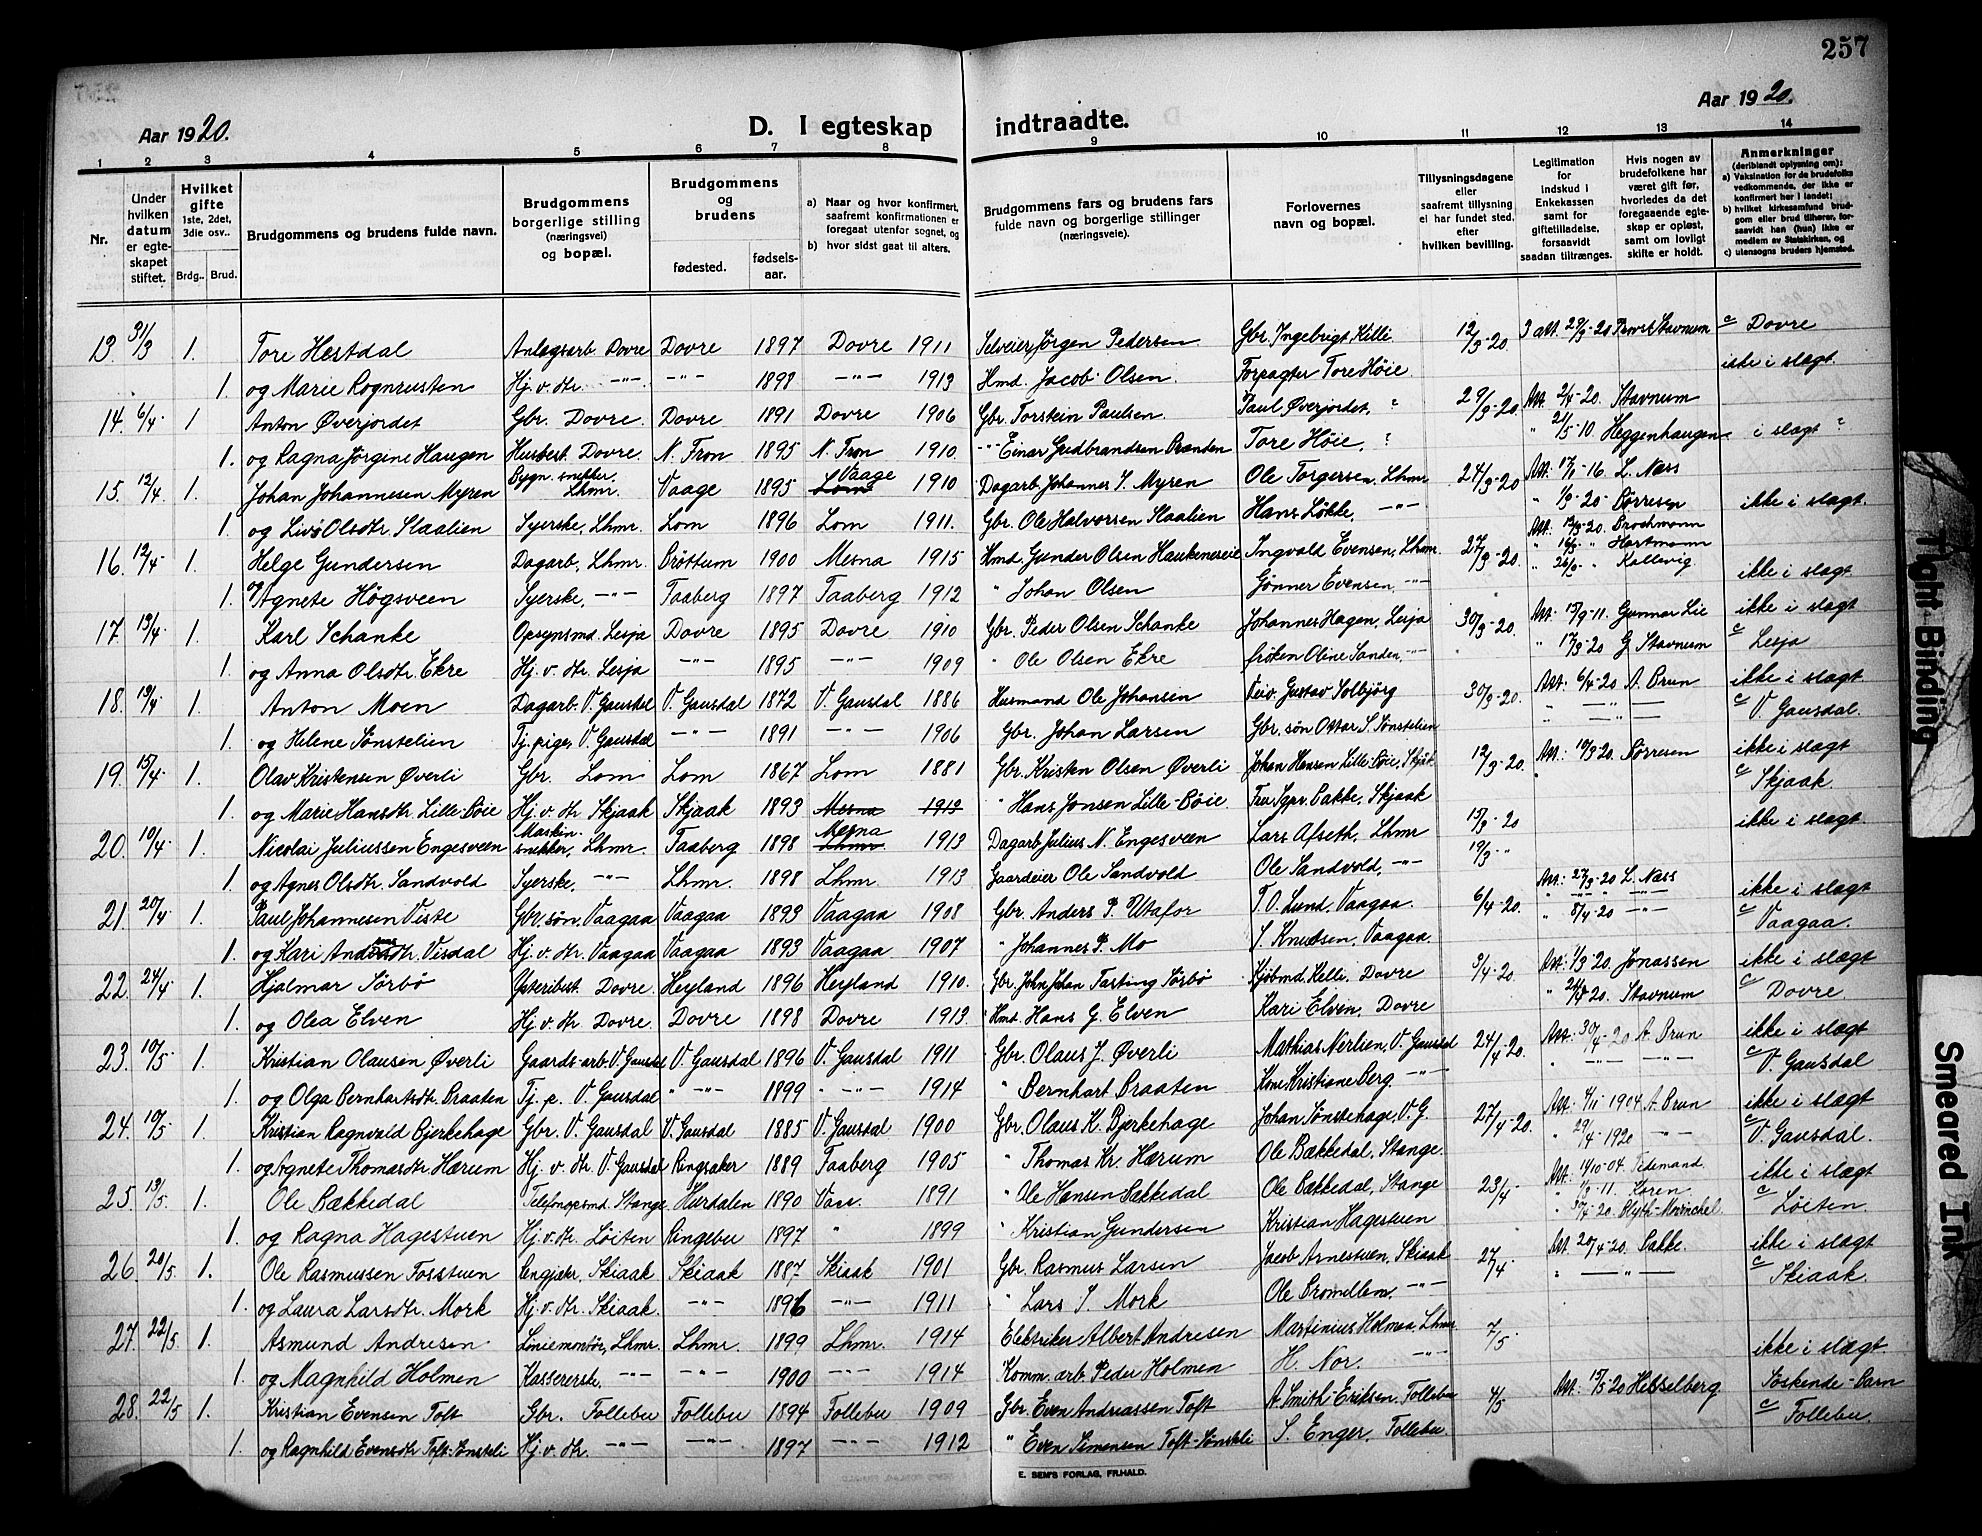 257
Aar 1920.
D. I egteskap indtraadte.
Aar 1920.
1 2 3 4 5 6 7 8 9 10 11 12 13 14
Nr.
Under hvilken datum er egteskapet stiftet.
Hvilket gifte 1ste, 2det, 3die osv..
Brdg.. Brud.
Brudgommens og brudens fulde navn.
Brudgommens borgerlige stilling (næringsvei) og bopæl.
Brudgommens og brudens
fødested. fødselsaar.
a) Naar og hvor konfirmert, saafremt konfirmationen er foregaat utenfor sognet, og
b) hvor sidst gaat til alters.
Brudgommens fars og brudens fars fulde navn og borgerlige stillinger (næringsveie).
Forlovernes navn og bopæl.
Tillysningsdagene eller saafremt tillysning ei har fundet sted, efter hvilken bevilling.
Legitimation for indskud i Enkekassen samt for giftetilladelse, forsaavidt saadan tiltrænges.
Hvis nogen av brudefolkene har været gift før, hvorledes da det foregaaende egteskap er opløst, samt om lovligt skifte er holdt.
Anmerkninger (deriblandt oplysning om):
a) Vaksination for de brudefolks vedkommende, der ikke er konfirmert her i landet;
b) hvilket kirkesamfund brudgom eller brud tilhører, forsaavidt han (hun) ikke er medlem av Statskirken, og
c) utensogns bruders hjemsted.
13. 31/3 1. Tore Hestdal Anlægsarb. Dovre Dovre 1897 Dovre 1911 Selveier Jörgen Pedersen Gbr. Ingebrigt Killi 12/3-20. 3 att 29/3-20 Stavnum c Dovre
1. og Marie Rognrusten Hj. v. dtr. -"- -"- 1898 -"- 1913 Hmd. Jacob Olsen. Forpagter Tore Höie. ikke i slægt
14. 6/4 1 Anton Øverjordet Gbr. Dovre. Dovre 1891 Dovre 1906 Gbr. Torstein Paulsen. Paul Øverjordet, ? 29/3-20. Att. 2/4-20. Stavnum
1. og Ragna Jörgine Haugen Husbest. Dovre N. Fron 1895 N. Fron 1910. -"- Einar Gudbrandsen Brænden Tore Höie, ? " 21/5-10. Heggenhaugen i slægt ?
15. 12/4 1. Johan Johannesen Myren Bygn. snekker. Lhmr. Vaage 1895 Vaage Lom 1910 Dagarb. Johannes J. Myren Ole Torgersen, Lhmr 24/3-20 Att. 17/1-16. L. Næss
1. og Livs Olsdtr. Slaalien Syerske, Lhmr. Lom 1896 Lom 1911. Gbr. Ole Halvorsen Slaalien Hans Løkke, -"- " 1/3-20- Børresen ikke i slægt
16. 12/4 1. Helge Gundersen Dagarb, Lhmr. Brøttum 1900 Mesna 1915 Hmd. Gunder Olsen Haukeneseie Ingvald Evensen, Lhmr. 27/3-20. Att. 12/3-20. Brochmann
" " Hartmann
1. og Agnete Högsveen Syerske, -"- Faaberg 1897 Faaberg 1912 " Johan Olsen Gønner Evensen, -"- " " Kallevig. ikke i slægt
17. 13/4 1. Karl Schanke Opsynsmd. Lesja Dovre 1895 Dovre 1910 Gbr. Peder Olsen Schanke Johannes Hagen, Lesja 30/3-20. Att. 15/9-11. Gunnar Lie ikke i slægt
1. og Anna Olsdtr. Ekre Hj. v. dtr. Lesja -"- 1895 -"- 1909 " Ole Olsen Ekre frøken Oline Sanden, -"- " 17/3-20 G. Stavnum c Lesja
18. 13/4 1. Anton Moen Dagarb. V. Gausdal V. Gausdal 1872 V. Gausdal 1886 Husmand Ole Johansen Veiv. Gustav Solbjörg 30/3-20. Att: 6/4-20 A. Brun ikke i slægt
1. og Helene Sønstelien Tj. pige, V. Gausdal -"- 1891 -"- 1906 Gbr. Johan Larsen Gbr. søn Ottar S. Sønstelien c V. Gausdal.
19. 15/4 1. Olav Kristensen Øverli Gbr. Lom Lom 1867 Lom 1881 Gbr. Kristen Olsen Øverli Johan Hansen Lille-Böie, Skjåk 12/3-20. Att: 10/3-20. Börresen ikke i slægt
1. og Marie Hansdtr. Lille-Böie Hj. v. dtr Skjaak Skjaak 1893 Mesna 1913 " Hans Jonsen Lille-Böie Fru Sgpr. Bakke, Skjaak c Skjaak.
20. 10/4 1. Nicolai Juliussen Engesveen Maskinsnekker, Lhmr. Faaberg 1898 Mesna Lhmr 1913 Dagarb Julius N. Engesveen Lars Afseth, Lhmr 15/3-20 ikke i slægt.
1. og Agnes Olsdtr. Sandvold Syerske, -"- Lhmr. 1898 Lhmr. 1913 Gaardeier Ole Sandvold Ole Sandvold, -"- 19/3-"
21. 20/4 1. Paul Johannesen Viste Gbr. søn, Vaagaa Vaagaa 1893 Vaagaa 1908 Gbr. Anders P. Utafor T. O. Lund, Vaagaa. 6/4-20. Att: 27/3-20 L. Næss ikke i slægt
1. og Kari Andersdtr. Visdal Hj. v. dtr. Vaagaa Vaagaa 1893 Vaagaa 1907 " Johannes P. Mo S. Knudsen, Vaagaa. " 8/4-20 -"- c Vaagaa.
22. 24/4 1. Hjalmar Sörbö Ysteribest. Dovre. Heyland 1896 Heyland 1910. Gbr. John Johan Tarting Sörbö Kjöbmd. Killi, Dovre 3/4-20. Att: 1/3-20. Jonassen ikke i slægt
1. og Olea Elven Hj. v. dtr Dovre Dovre 1898 Dovre 1913. Hmd. Hans G. Elven Kari Elven, Dovre " 24/4-20. Stavnum c Dovre.
23. 10/5 1. Kristian Olausen Øverli Gaards-arb. V. Gausdal V. Gausdal 1896 V. Gausdal 1911 Gbr. Olaus J. Øverli Mathias Nerlien, V. Gausdal 24/4-20. Att: 30/4-20 A. Brun ikke i slægt
1. og Olga Bernhartsdtr. Braaten Tj. p. V. Gausdal -"- 1899 -"- 1914 " Bernhart Braaten Kone Kristiane Berg -"- " -"- -"- c V. Gausdal
24. 10/5 1. Kristian Ragnvald Bjerkehage Gbr. V. Gausdal V. Gausdal 1885 V. Gausdal 1900 Gbr. Olaus K. Bjerkehage Johan Sønstehage, V. G. 27/4-20. Att: 4/11-1904 A. Brun ikke i slægt
1. og Agnete Thomasdtr Hærum Hj. v. dtr. V. Gausdal Ringsaker 1889 Faaberg 1905 " Thomas Kr. Hærum Ole Bækkedal, Stange. " 29/4 1920 -"- c V. Gausdal.
25. 13/5 1. Ole Bækkedal Telefonopsmd. Stange, Hurdalen 1890 Vass. 1891 " Ole Hansen Bækkedal Ole Bækkedal, Stange 23/4- Att: 14/10-04. Tidemand. ikke i slægt
" 1/3-11. Koren.
1. og Ragna Hagestuen Hj. v. dtr. Löiten Ringebu 1897 " 1899 " Kristian Gundersen Kristian Hagestuen " 30/4-20. Blyth-Mørnchel. c Löiten
26. 20/5 1. Ole Rasmussen Fosstuen Skiaak Skiaak 1887 Skiaak 1901 Gbr. Rasmus Larsen Jacob Arnestuen, Skiaak 27/4- Att: 20/4-20. Bakke. ikke i slægt
1. og Laura Larsdtr. Mork Hj. v. dtr. Skiaak. -"- 1896 -"- 1911 " Lars S. Mork Ole Bromillem, -"- " -"- c Skiaak.
27. 22/5 1. Asmund Andresen Liniemontör, Lhmr. Lhmr. 1899 Lhmr. 1914 Elektriker Albert Andresen Martinius Holmen, Lhmr. 7/5-
1. og Magnhild Holmen Kassererske, -"- -"- 1900 -"- 1914 Komm. arb. Peder Holmen H. Nor. -"- ikke i slægt.
28. 22/5 1. Kristian Evensen Toft Gbr. Follebu Follebu 1894 Follebu 1909 Gbr. Even Andreassen Toft A. Smith-Eriksen, Follebu 4/5- Att: 15/5-20 Hesselberg. Søskende-Barn
1. og Ragnhild Evensdtr Toft-Sønsteli Hj. v. dtr. -"- -"- 1897 -"- 1912 " Even Simensen Toft-Sønsteli S. Enger, Follebu c Follebu.
E. SEM'S FORLAG, FR.HALD.
Tight Binding
Smeared Ink